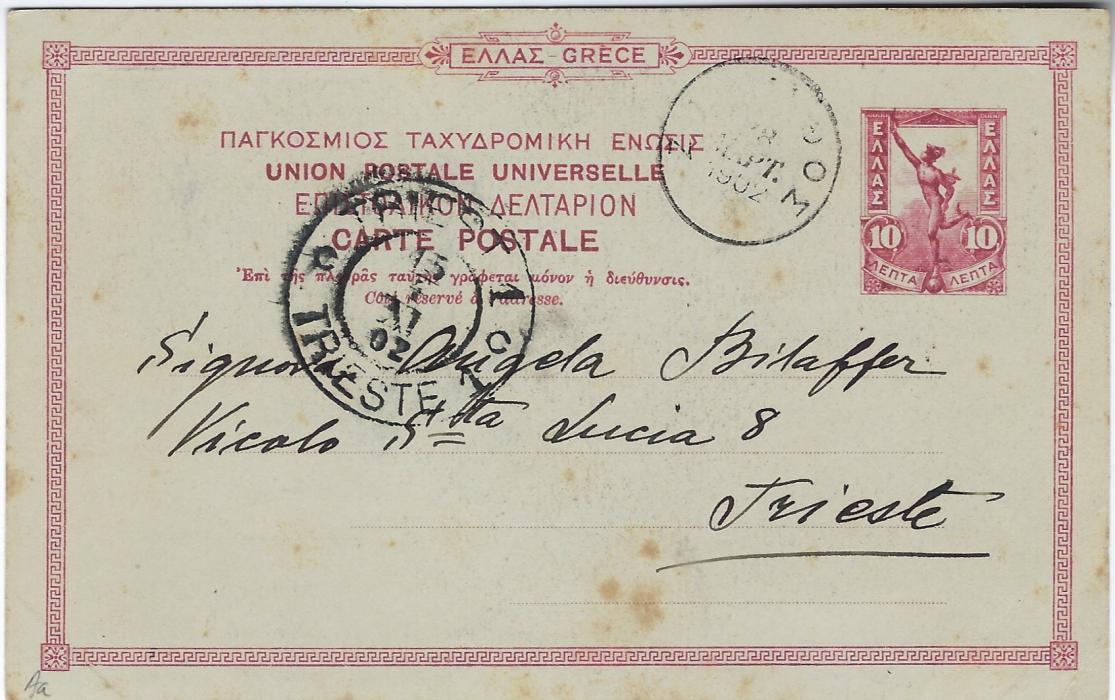 ΕΛΛΑΣ-GRÈCE
ΠΑΓΚΟΣΜΙΟΣ ΤΑΧΥΔΡΟΜΙΚΗ ΕΝΩΣΙΣ
UNION POSTALE UNIVERSELLE
ΕΠΙΣΤΟΛΙΚΟΝ ΔΕΛΤΑΡΙΟΝ
CARTE POSTALE
Ἐπὶ τῆς πλευρᾶς ταύτης γράφεται μόνον ἡ διεύθυνσις.
Côté réservé à l'adresse.
ΜΑΡΤ.
1902
ΕΛΛΑΣ
ΕΛΛΑΣ
10 10
ΛΕΠΤΑ ΛΕΠΤΑ
02
TRIESTE
Signora Angela Bilaffer
Vicolo Stta Lucia 8
Trieste
Aa